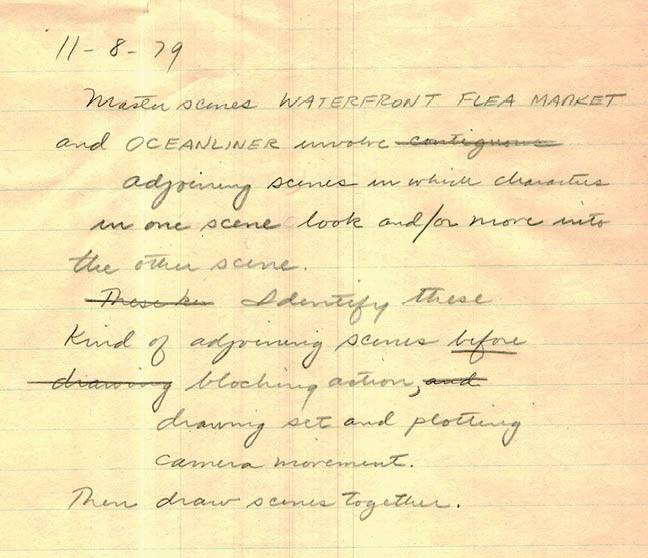 11-8-79
Master scenes WATERFRONT FLEA MARKET
and OCEANLINER involve contiguous
adjoining scenes in which characters
in one scene look and/or move into
the other scene.
These kin Identify these
Kind of adjoining scenes before
drawing blocking action, and
drawing set and plotting
camera movement.
Then draw scenes together.